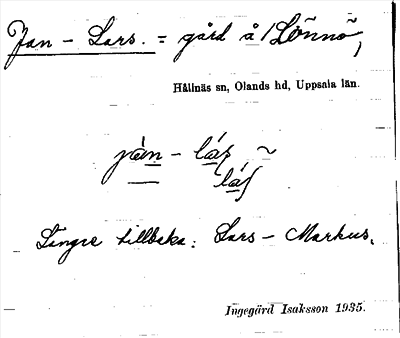 Jan - Lars. = gård å Lönnö,
Hållnäs sn, Olands hd, Uppsala län.
jàn - lás ~
lás
Längre tillbaka: Lars - Markus.
Ingegärd Isaksson 1935.